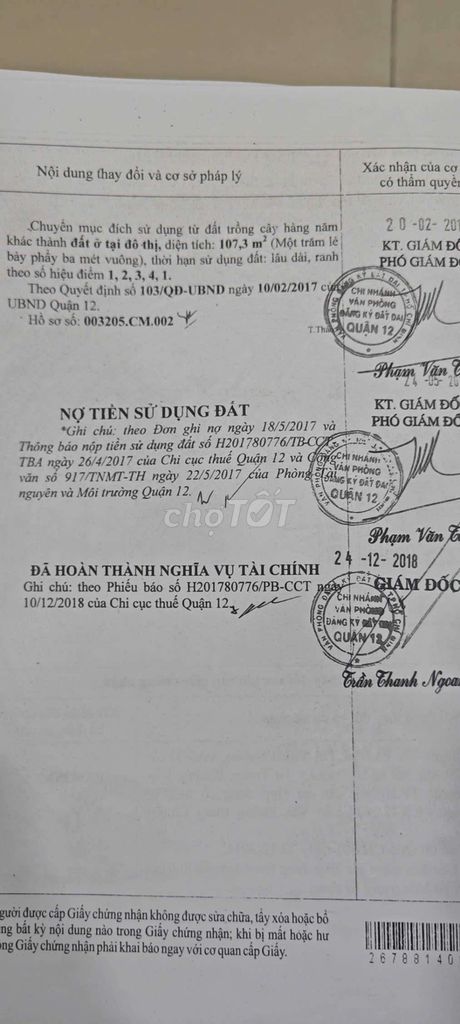 Nội dung thay đổi và cơ sở pháp lý
Xác nhận của cơ
có thẩm quyền
Chuyển mục đích sử dụng từ đất trồng cây hàng năm
khác thành đất ở tại đô thị, diện tích: 107,3 m² (Một trăm lẻ
bảy phẩy ba mét vuông), thời hạn sử dụng đất: lâu dài, ranh
theo số hiệu điểm 1, 2, 3, 4, 1.
Theo Quyết định số 103/QĐ-UBND ngày 10/02/2017 của
UBND Quận 12.
Hồ sơ số: 003205.CM.002
20-02-201
KT. GIÁM ĐỐ
PHÓ GIÁM Đ
CHI NHÁNH
VĂN PHÒNG
ĐĂNG KÝ ĐẤT ĐAI
QUẬN 12
Phạm Văn
24-05-201
NỢ TIỀN SỬ DỤNG ĐẤT
*Ghi chú: theo Đơn ghi nợ ngày 18/5/2017 và
Thông báo nộp tiền sử dụng đất số H201780776/TB-CCT-
TBA ngày 26/4/2017 của Chi cục thuế Quận 12 và Công
văn số 917/TNMT-TH ngày 22/5/2017 của Phòng
nguyên và Môi trường Quận 12.
KT. GIÁM ĐỐ
PHÓ GIÁM ĐỐ
CHI NHÁNH
VĂN PHÒNG
ĐĂNG KÝ ĐẤT ĐAI
QUẬN 12
Phạm Văn
chợTỐT
24-12-2018
ĐÃ HOÀN THÀNH NGHĨA VỤ TÀI CHÍNH
Ghi chú: theo Phiếu báo số H201780776/PB-CCT ngày
10/12/2018 của Chi cục thuế Quận 12.
GIÁM ĐỐC
CHI NHÁNH
VĂN PHÒNG
ĐĂNG KÝ ĐẤT ĐAI
QUẬN 12
Trần Thanh Ngoa
gười được cấp Giấy chứng nhận không được sửa chữa, tẩy xóa hoặc bổ
ng bất kỳ nội dung nào trong Giấy chứng nhận; khi bị mất hoặc hư
ng Giấy chứng nhận phải khai báo ngay với cơ quan cấp Giấy.
26788140